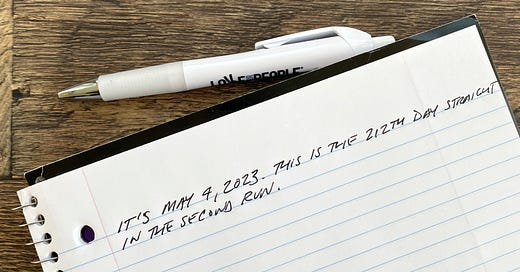 LOVE PEOPLE
IT'S MAY 4, 2023. THIS IS THE 212TH DAY STRAIGHT
IN THE SECOND RUN.